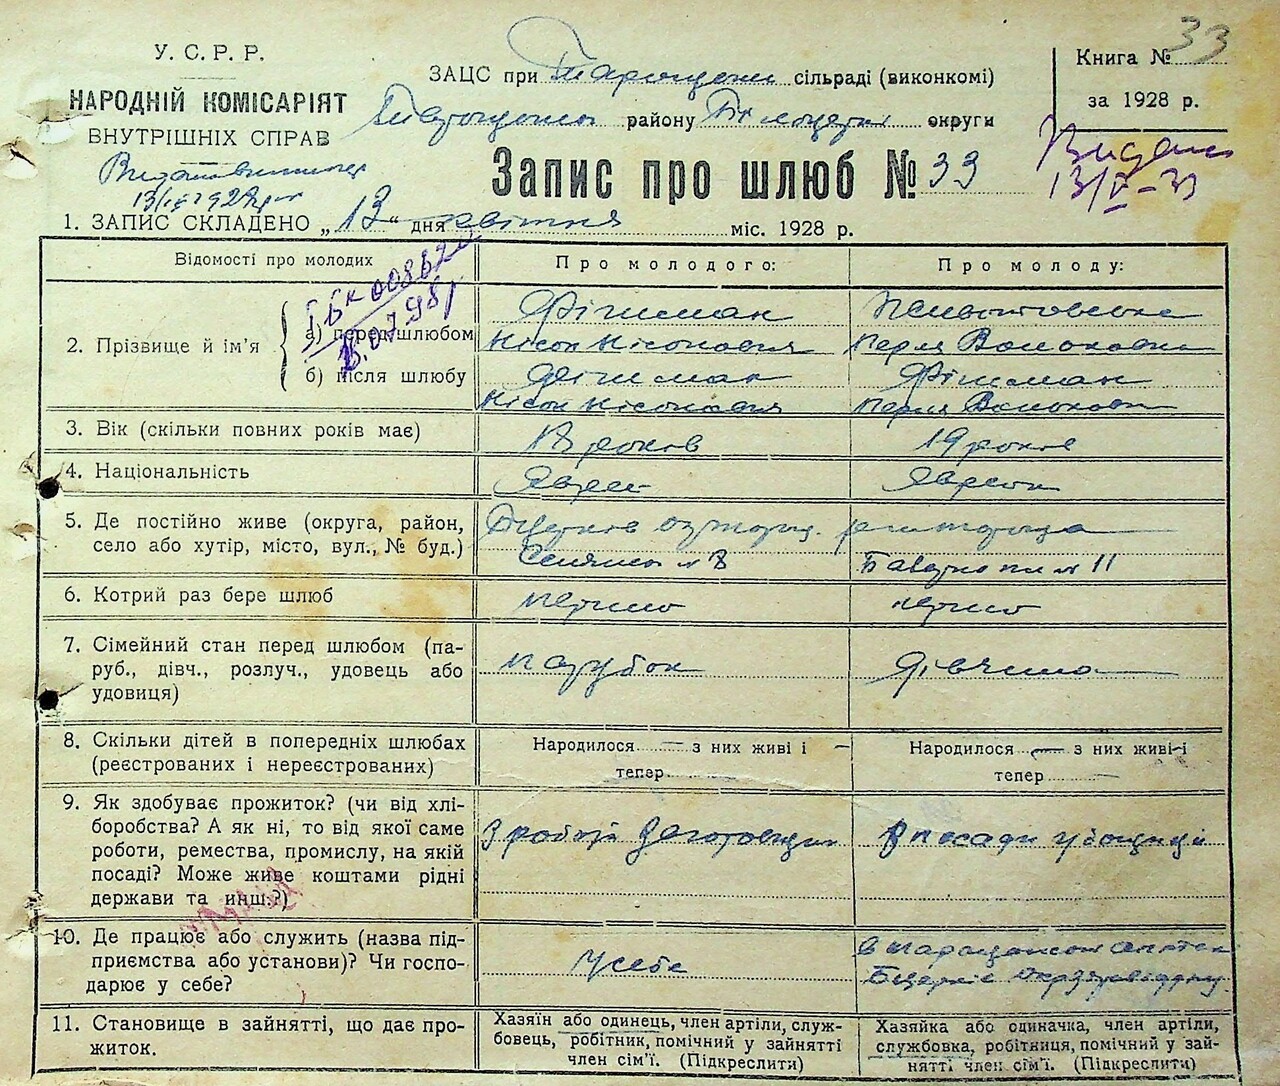 У. С. Р. Р.
НАРОДНІЙ КОМІСАРІЯТ
ВНУТРІШНІХ СПРАВ
13/IV 1928
ЗАЦС при сільраді (виконкомі)
району округи
Книга № 33
за 1928 р.
Запис про шлюб № 33
13/V-33
1. ЗАПИС СКЛАДЕНО „13“ дня квітня міс. 1928 р.
Відомості про молодих
Про молодого:
Про молоду:
2. Прізвище й ім'я
а) перед шлюбом
Фішман
Нісон Нісонович
Перля
б) після шлюбу
Фішман
Фішман
Нісон Нісонович
Перля
3. Вік (скільки повних років має)
18 років
19 років
4. Національність
Яврей
Яврейка
5. Де постійно живе (округа, район,
село або хутір, місто, вул., № буд.)
№ 8
№ 11
6. Котрий раз бере шлюб
перший
перший
7. Сімейний стан перед шлюбом (па-
руб., дівч., розлуч., удовець або
удовиця)
парубок
дівчина
8. Скільки дітей в попередніх шлюбах
(реєстрованих і нереєстрованих)
Народилося — з них живі і —
тепер
Народилося — з них живі і —
тепер
9. Як здобуває прожиток? (чи від хлі-
боробства? А як ні, то від якої саме
роботи, ремества, промислу, на якій
посаді? Може живе коштами рідні
держави та инш.?)
З робот
З посади
10. Де працює або служить (назва під-
приємства або установи)? Чи госпо-
дарює у себе?
У себе
11. Становище в зайнятті, що дає про-
житок.
Хазяїн або одинець, член артіли, служ-
бовець, робітник, помічний у зайнятті
член сім'ї. (Підкреслити)
Хазяйка або одиначка, член артіли,
службовка, робітниця, помічний у зай-
нятті член сім'ї. (Підкреслити)